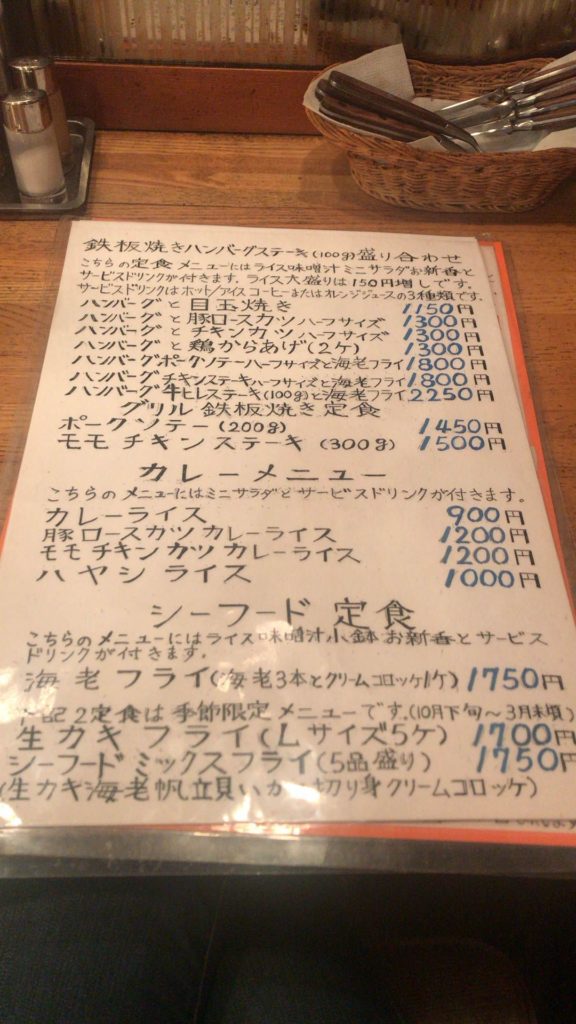 鉄板焼きハンバーグステーキ(100g)盛り合わせ
こちらの定食メニューにはライス味噌汁ミニサラダお新香と
サービスドリンクが付きます。ライス大盛りは150円増しです。
サービスドリンクはホット/アイスコーヒーまたはオレンジジュースの3種類です。
ハンバーグと目玉焼き 1150円
ハンバーグと豚ロースカツハーフサイズ 1300円
ハンバーグとチキンカツハーフサイズ 1300円
ハンバーグと鶏からあげ(2ケ) 1300円
ハンバーグポークソテーハーフサイズと海老フライ 1800円
ハンバーグチキンステーキハーフサイズと海老フライ 1800円
ハンバーグ牛ヒレステーキ(100g)と海老フライ 2250円
グリル鉄板焼き定食
ポークソテー(200g) 1450円
モモチキンステーキ(300g) 1500円
カレーメニュー
こちらのメニューにはミニサラダとサービスドリンクが付きます。
カレーライス 900円
豚ロースカツカレーライス 1200円
モモチキンカツカレーライス 1200円
ハヤシライス 1000円
シーフード定食
こちらのメニューにはライス味噌汁小鉢お新香とサービス
ドリンクが付きます。
海老フライ(海老3本とクリームコロッケ1ケ) 1750円
下記2定食は季節限定メニューです。(10月下旬〜3月末頃)
生カキフライ(Lサイズ5ケ) 1700円
シーフードミックスフライ(5品盛り) 1750円
(生カキ海老帆立貝いか切り身クリームコロッケ)